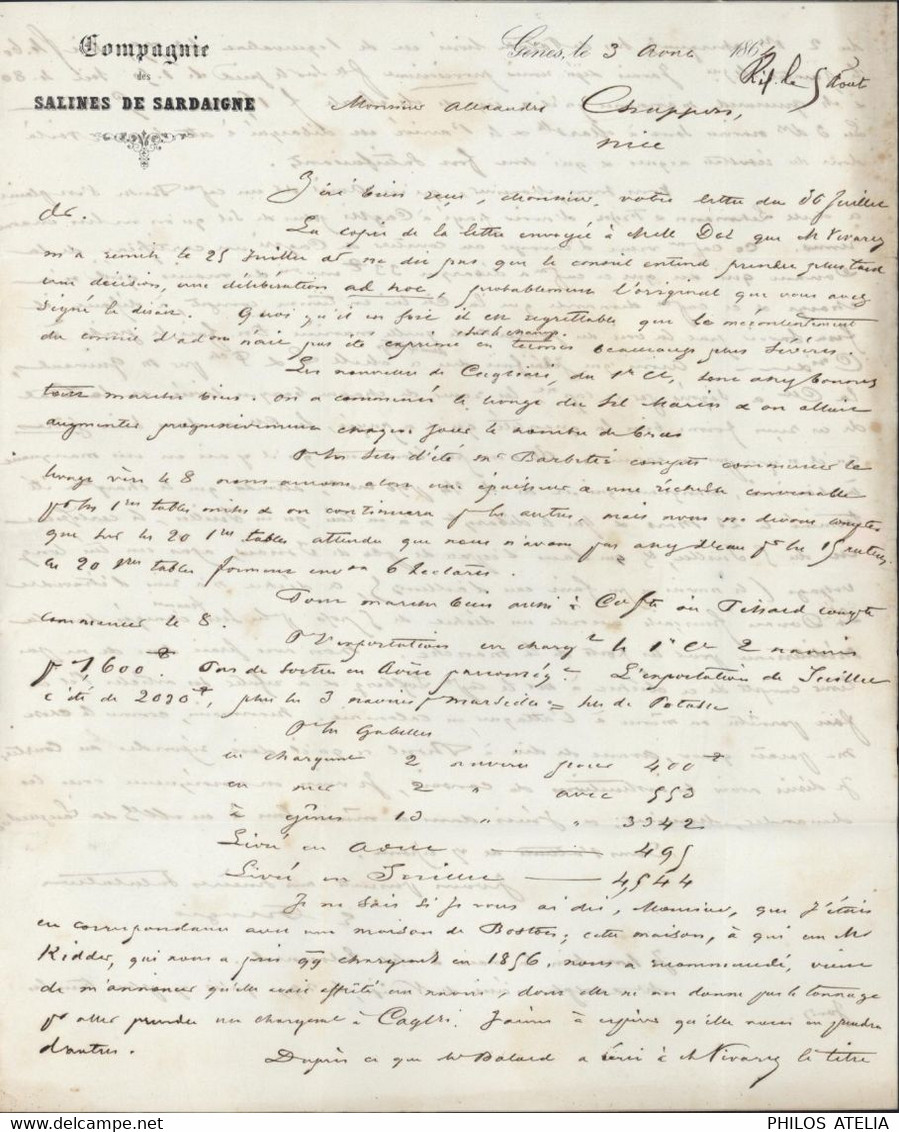 Compagnie
des
SALINES DE SARDAIGNE
Gênes, le 3 Août 186
Rép. le 5 Août
Monsieur Alexandre
Nice
J'ai bien reçu, Monsieur, votre lettre du 30 Juillet
dr.
La copie de la lettre envoyée à que M Vivarez
m'a remise le 25 Juillet ne dit pas que le conseil entend prendre plus tard
une décision, une délibération ad hoc, probablement l'original que vous avez
signé le disait. Quoi qu'il en soit il est regrettable que le mécontentement
du conseil d'adon n'ait pas été exprimé en termes beaucoup plus sévères.
Les nouvelles de Cagliari, du 1er Ct, sont assez bonnes
tout marche bien. On a commencé le du sel & on allait
augmenter progressivement chaque jour le nombre de bras
Pr les sels d'été Mr compte commencer le
vers le 8 nous aurons alors une épaisseur & une convenable
pr les 1res tables & on continuera pr les autres, mais nous ne devons compter
que sur les 20 1res tables attendu que nous n'avons pas assez d'eau pr les 15 autres.
Les 20 1res tables forment envon 6 hectares.
Tout marche bien aussi à où compte
commencer le 8.
Pr l'exportation en chargt le 1er Ct 2 navires
pr 1,600 Pas de sortie en Août L'exportation de Juillet
a été de 2090, plus les 3 navires
Pr les Gabelles
en chargent 2 navires pour 400
en mer 2 " avec 553
à gênes 13 " " 3342
Livré en Août — 495
Livré en Juillet — 4544
Je ne sais si je vous ai dit, Monsieur, que j'étais
en correspondance avec une maison de Boston; cette maison, à qui un Mr
Kidder, qui nous a pris qq chargemts en 1856, nous a recommandé, vient
de m'annoncer qu'elle avait affrété un navire, dont elle ne me donne pas le tonnage
pr aller prendre un chargemt à Cagliri. J'aime à espérer qu'elle nous en prendra
d'autres.
Daprès ce que Mr Balard a écrit à M Vivarez le titre
PHILOS ATELIA